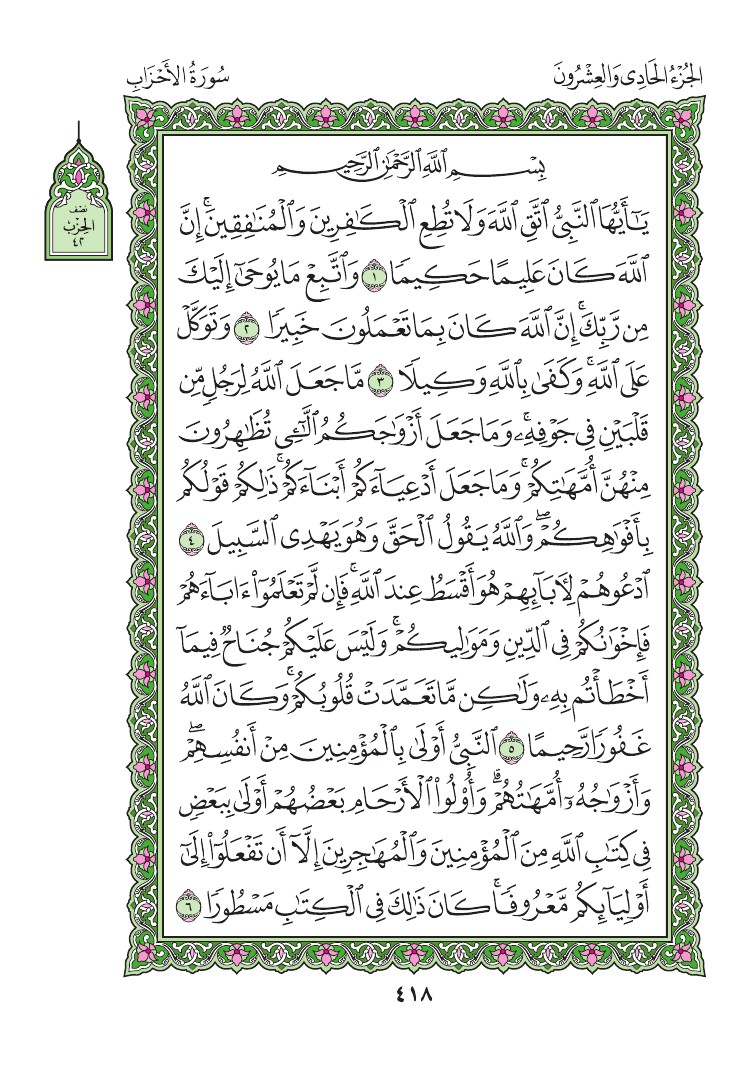 الجُزْءُ الحَادِي وَالعِشْرُونَ
سُورَةُ الأَحْزَابِ
نصف
الحزب
٤٢
بِسْمِ ٱللَّهِ ٱلرَّحْمَٰنِ ٱلرَّحِيمِ
يَـٰٓأَيُّهَا ٱلنَّبِيُّ ٱتَّقِ ٱللَّهَ وَلَا تُطِعِ ٱلْكَـٰفِرِينَ وَٱلْمُنَـٰفِقِينَۚ إِنَّ
ٱللَّهَ كَانَ عَلِيمًا حَكِيمًا ١ وَٱتَّبِعْ مَا يُوحَىٰٓ إِلَيْكَ
مِن رَّبِّكَۚ إِنَّ ٱللَّهَ كَانَ بِمَا تَعْمَلُونَ خَبِيرًا ٢ وَتَوَكَّلْ
عَلَى ٱللَّهِۚ وَكَفَىٰ بِٱللَّهِ وَكِيلًا ٣ مَّا جَعَلَ ٱللَّهُ لِرَجُلٍ مِّن
قَلْبَيْنِ فِي جَوْفِهِۦۚ وَمَا جَعَلَ أَزْوَٰجَكُمُ ٱلَّـٰٓـِٔي تُظَـٰهِرُونَ
مِنْهُنَّ أُمَّهَـٰتِكُمْۚ وَمَا جَعَلَ أَدْعِيَآءَكُمْ أَبْنَآءَكُمْۚ ذَٰلِكُمْ قَوْلُكُم
بِأَفْوَٰهِكُمْۖ وَٱللَّهُ يَقُولُ ٱلْحَقَّ وَهُوَ يَهْدِي ٱلسَّبِيلَ ٤
ٱدْعُوهُمْ لِأَبَآئِهِمْ هُوَ أَقْسَطُ عِندَ ٱللَّهِۚ فَإِن لَّمْ تَعْلَمُوٓا۟ ءَابَآءَهُمْ
فَإِخْوَٰنُكُمْ فِي ٱلدِّينِ وَمَوَٰلِيكُمْۚ وَلَيْسَ عَلَيْكُمْ جُنَاحٌ فِيمَآ
أَخْطَأْتُم بِهِۦ وَلَـٰكِن مَّا تَعَمَّدَتْ قُلُوبُكُمْۚ وَكَانَ ٱللَّهُ
غَفُورًا رَّحِيمًا ٥ ٱلنَّبِيُّ أَوْلَىٰ بِٱلْمُؤْمِنِينَ مِنْ أَنفُسِهِمْۖ
وَأَزْوَٰجُهُۥٓ أُمَّهَـٰتُهُمْۗ وَأُو۟لُوا۟ ٱلْأَرْحَامِ بَعْضُهُمْ أَوْلَىٰ بِبَعْضٍ
فِي كِتَـٰبِ ٱللَّهِ مِنَ ٱلْمُؤْمِنِينَ وَٱلْمُهَـٰجِرِينَ إِلَّآ أَن تَفْعَلُوٓا۟ إِلَىٰٓ
أَوْلِيَآئِكُم مَّعْرُوفًاۚ كَانَ ذَٰلِكَ فِي ٱلْكِتَـٰبِ مَسْطُورًا ٦
٤١٨